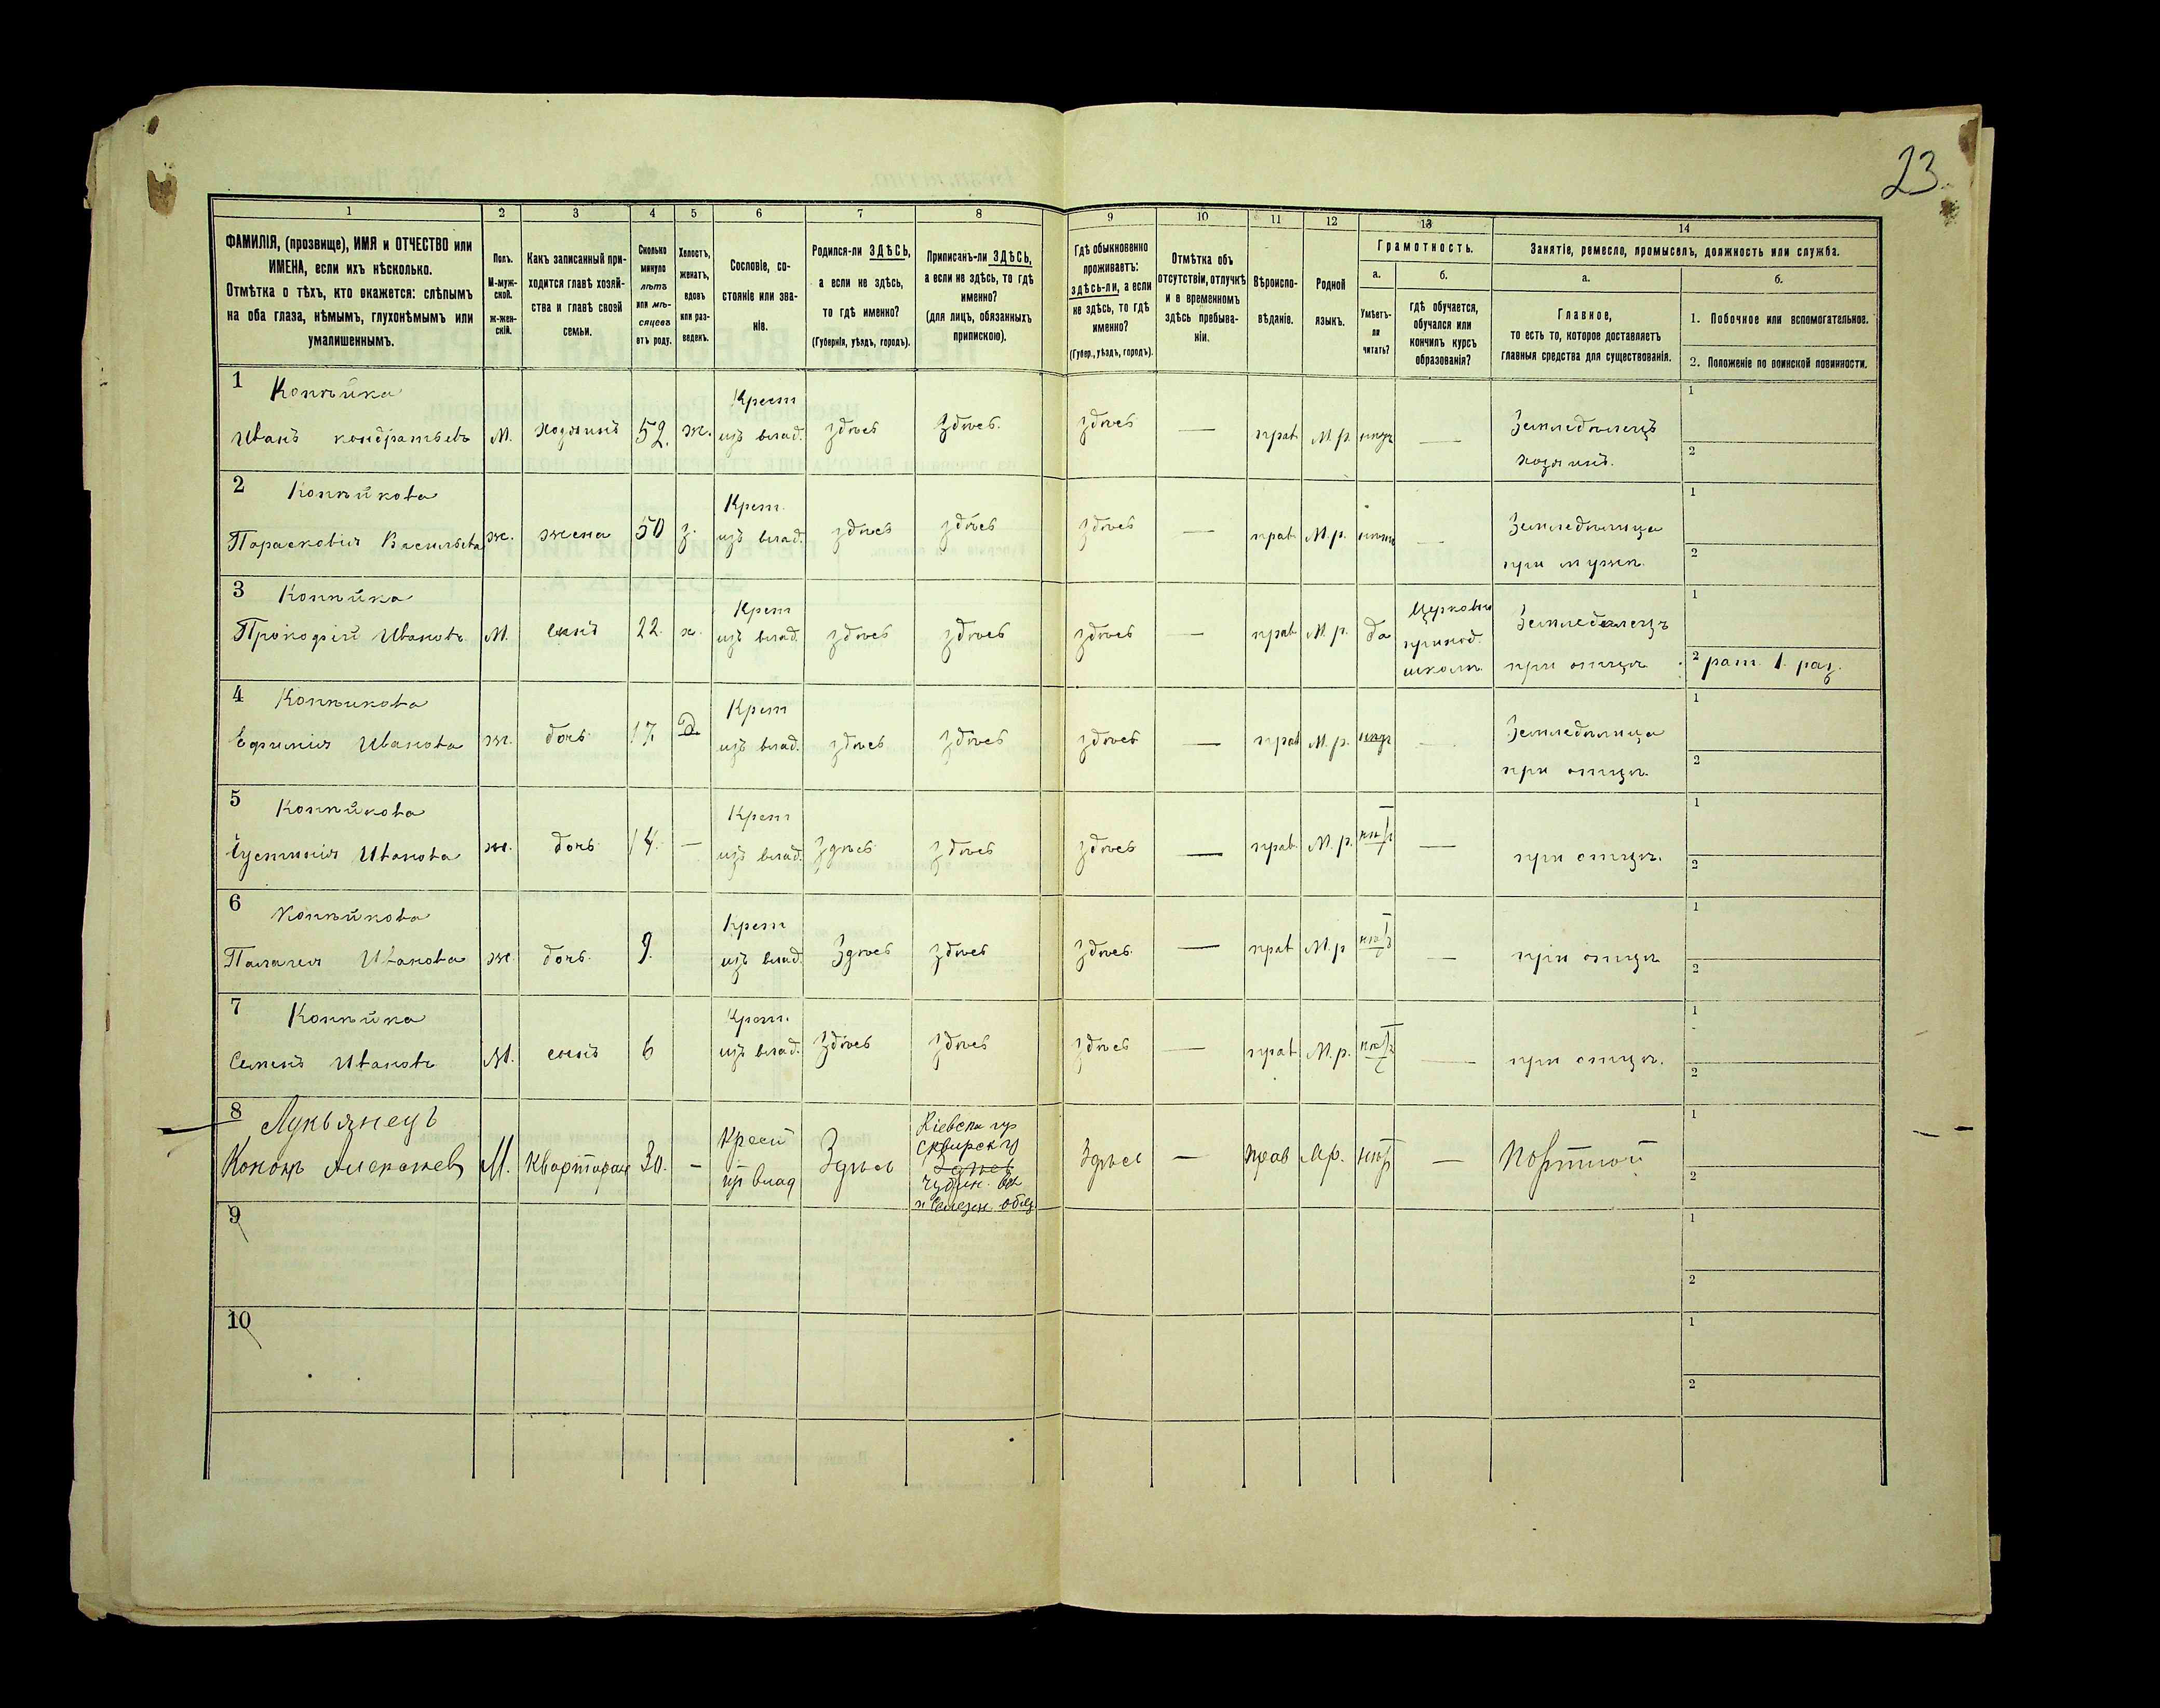 23
1 2 3 4 5 6 7 8 9 10 11 12 13 14
ФАМИЛІЯ, (прозвище), ИМЯ и ОТЧЕСТВО или
ИМЕНА, если ихъ нѣсколько.
Отмѣтка о тѣхъ, кто окажется: слѣпымъ
на оба глаза, нѣмымъ, глухонѣмымъ или
умалишеннымъ.
Полъ.
М-муж-
ской.
ж-жен-
скій.
Какъ записанный при-
ходится главѣ хозяй-
ства и главѣ своей
семьи.
Сколько
минуло
лѣтъ
или мѣ-
сяцевъ
отъ роду.
Холостъ,
женатъ,
вдовъ
или раз-
веденъ.
Сословіе, со-
стояніе или зва-
ніе.
Родился-ли ЗДѢСЬ,
а если не здѣсь,
то гдѣ именно?
(Губернія, уѣздъ, городъ).
Приписанъ-ли ЗДѢСЬ,
а если не здѣсь, то гдѣ
именно?
(для лицъ, обязанныхъ
припискою).
Гдѣ обыкновенно
проживаетъ:
здѣсь-ли, а если
не здѣсь, то гдѣ
именно?
(Губер., уѣздъ, городъ).
Отмѣтка объ
отсутствіи, отлучкѣ
и о временномъ
здѣсь пребыва-
ніи.
Вѣроиспо-
вѣданіе.
Родной
языкъ.
Грамотность.
а.
Умѣетъ-
ли
читать?
б.
гдѣ обучается,
обучался или
кончилъ курсъ
образованія?
Занятіе, ремесло, промыселъ, должность или служба.
а.
Главное,
то есть то, которое доставляетъ
главныя средства для существованія.
б.
1. Побочное или вспомогательное.
2. Положеніе по воинской повинности.
1 Копѣйка Крест
Иванъ Кондратьевъ М. хозяинъ 52. ж. изъ влад. здѣсь здѣсь. здѣсь — прав. М.р. — Земледѣлецъ
хозяинъ.
1
2
2 Копѣйкова Крест.
Парасковія Васильева ж. жена 50 з. изъ влад. здѣсь здѣсь здѣсь — прав. М.р. — Земледѣлица
при мужѣ.
1
2
3 Копѣйка Крест Церковно
Прокофій Ивановъ М. сынъ 22. х. изъ влад. здѣсь здѣсь здѣсь — прав. М.р. да приход. Земледѣлецъ
школѣ при отцѣ
1
2 рат. 1. раз.
4 Копѣйкова Крест
Ефимія Иванова ж. дочь 17 Д. изъ влад. здѣсь здѣсь здѣсь — прав М.р. — Земледѣлица
при отцѣ.
1
2
5 Копѣйкова Крест
Иванова ж. дочь 14. — изъ влад. здѣсь здѣсь здѣсь — прав. М.р. — при отцѣ.
1
2
6 Копѣйкова Крест
Палагея Иванова ж. дочь. 9. изъ влад. Здѣсь здѣсь здѣсь. — прав М.р — при отцѣ
1
2
7 Копѣйка Крест.
Семенъ Ивановъ М. сынъ 6 изъ влад. Здѣсь здѣсь здѣсь — прав М.р. — при отцѣ.
1
2
8 Лукьянецъ Крест Кіевск гу
Кононъ М. Квартиран 30. — из влад Здѣсь сквирск у Здѣсь — прав М.р. — Портной
здѣсь
общ
1
2
9
1
2
10
1
2